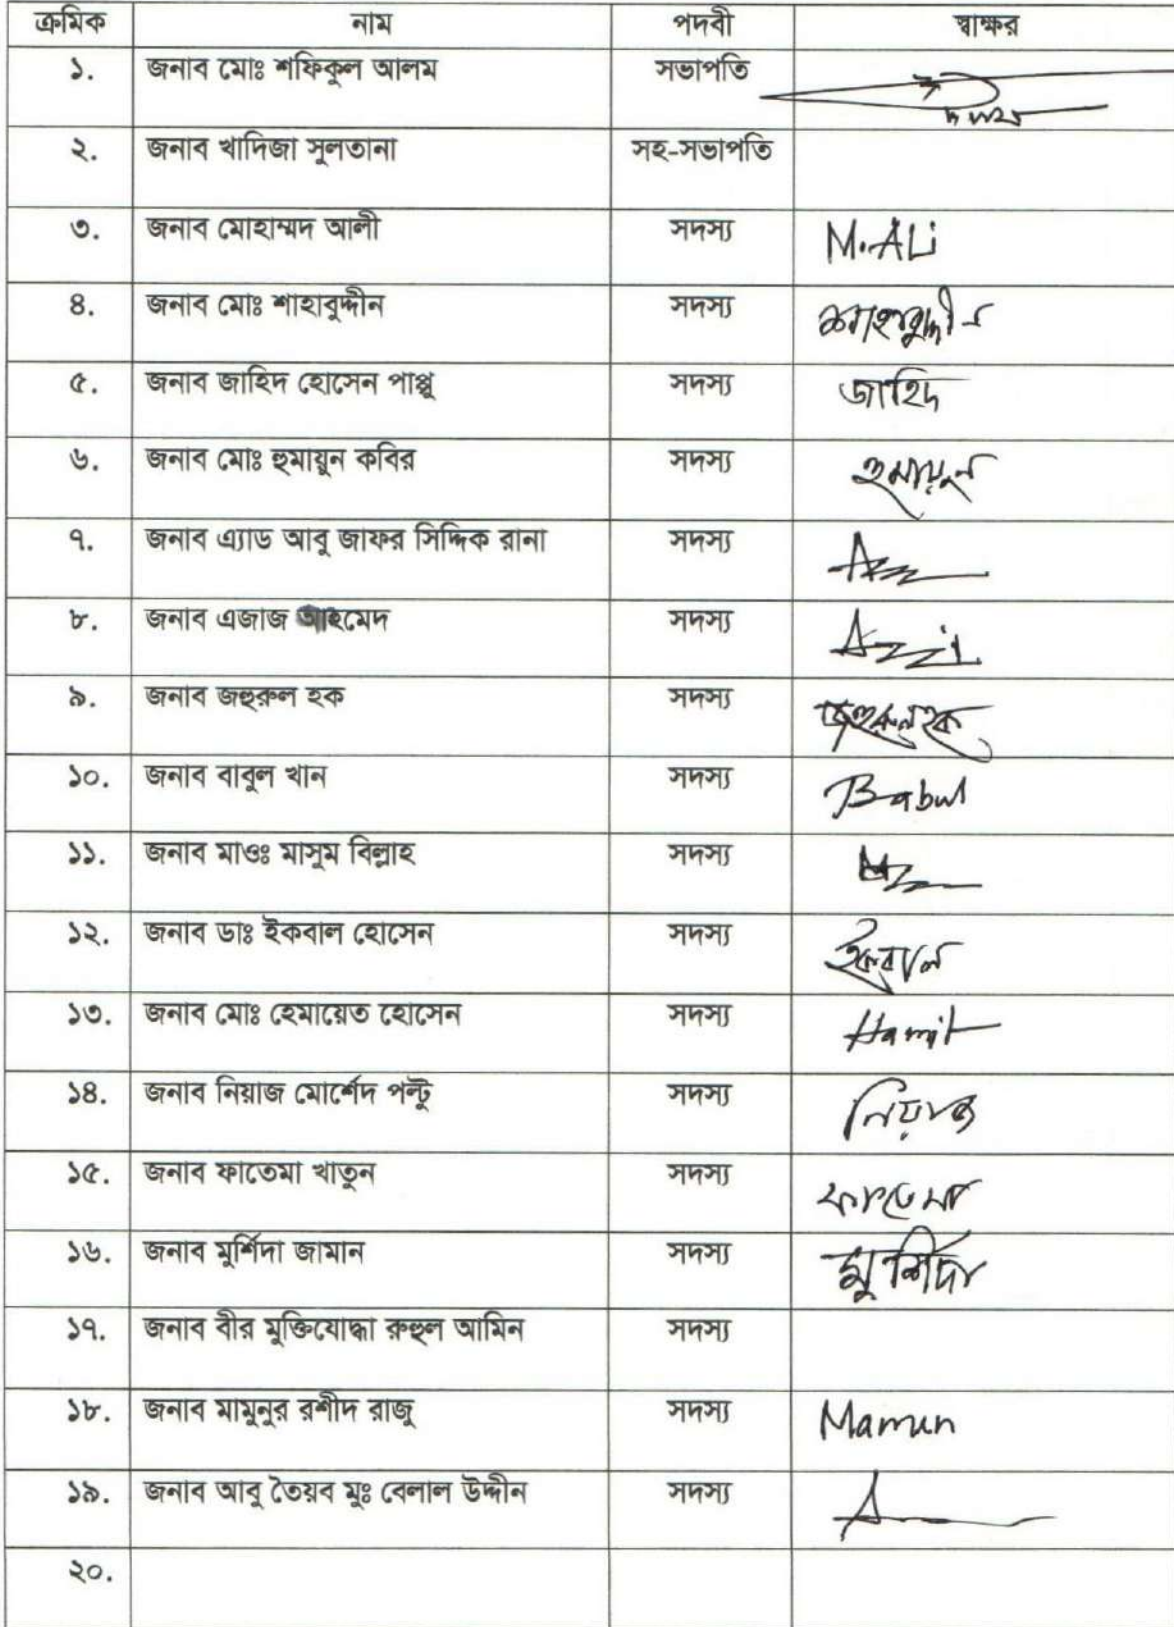 ক্রমিক নাম পদবী স্বাক্ষর
১. জনাব মোঃ শফিকুল আলম সভাপতি
২. জনাব খাদিজা সুলতানা সহ-সভাপতি
৩. জনাব মোহাম্মদ আলী সদস্য M.ALi
৪. জনাব মোঃ শাহাবুদ্দীন সদস্য শাহাবুদ্দীন
৫. জনাব জাহিদ হোসেন পাপ্পু সদস্য জাহিদ
৬. জনাব মোঃ হুমায়ুন কবির সদস্য হুমায়ুন
৭. জনাব এ্যাড আবু জাফর সিদ্দিক রানা সদস্য
৮. জনাব এজাজ আহমেদ সদস্য
৯. জনাব জহুরুল হক সদস্য জহুরুল হক
১০. জনাব বাবুল খান সদস্য Babul
১১. জনাব মাওঃ মাসুম বিল্লাহ সদস্য
১২. জনাব ডাঃ ইকবাল হোসেন সদস্য ইকবাল
১৩. জনাব মোঃ হেমায়েত হোসেন সদস্য
১৪. জনাব নিয়াজ মোর্শেদ পল্টু সদস্য নিয়াজ
১৫. জনাব ফাতেমা খাতুন সদস্য ফাতেমা
১৬. জনাব মুর্শিদা জামান সদস্য মুর্শিদা
১৭. জনাব বীর মুক্তিযোদ্ধা রুহুল আমিন সদস্য
১৮. জনাব মামুনুর রশীদ রাজু সদস্য Mamun
১৯. জনাব আবু তৈয়ব মুঃ বেলাল উদ্দীন সদস্য
২০.